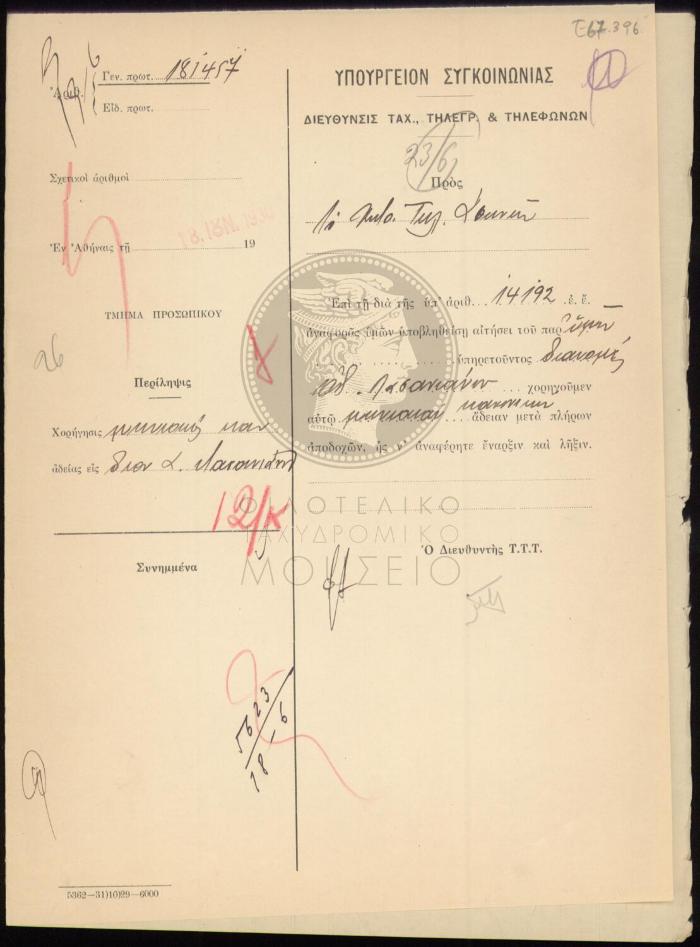 Τ67.396
Ἀριθ.
Γεν. πρωτ. 181457
Εἰδ. πρωτ.
Σχετικοὶ ἀριθμοὶ
Ἐν Ἀθήναις τῇ 18. ΙΟΥΝ. 1930 19
ΤΜΗΜΑ ΠΡΟΣΩΠΙΚΟΥ
26
Περίληψις
Χορήγησις μηνιαίας καν
ἀδείας εἰς διαν
12/κ
Συνημμένα
5623
18-6
5362—31)10)29—6000
ΥΠΟΥΡΓΕΙΟΝ ΣΥΓΚΟΙΝΩΝΙΑΣ
ΔΙΕΥΘΥΝΣΙΣ ΤΑΧ., ΤΗΛΕΓΡ. & ΤΗΛΕΦΩΝΩΝ
23/6
Πρὸς
Τὸ
Ἐπὶ τῇ διὰ τῆς ὑπ' ἀριθ. 14192 ἐ. ἔ.
ἀναφορᾶς ὑμῶν ὑποβληθείσῃ αἰτήσει τοῦ παρ' ὑμῖν
ὑπηρετοῦντος διανομέως
χορηγοῦμεν
αὐτῷ μηνιαίαν κανονικὴν ἄδειαν μετὰ πλήρων
ἀποδοχῶν, ἧς ν' ἀναφέρητε ἔναρξιν καὶ λῆξιν.
Ὁ Διευθυντὴς Τ.Τ.Τ.
ΦΙΛΟΤΕΛΙΚΟ
ΤΑΧΥΔΡΟΜΙΚΟ
ΜΟΥΣΕΙΟ